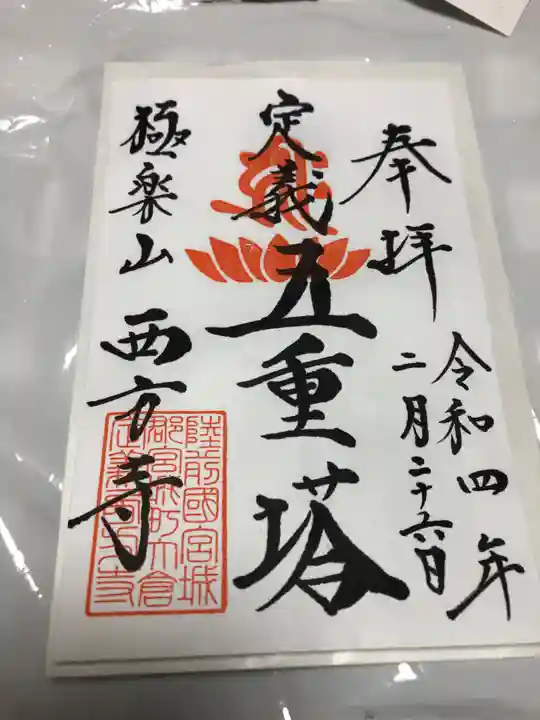 奉拝
令和四年
二月二十六日
定義五重塔
極楽山西方寺
陸前國宮城
郡宮城町大倉
定義西方寺